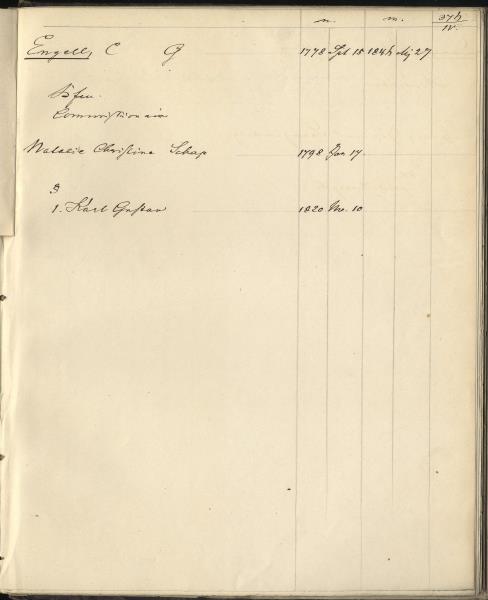 n. m. 374
IV.
Engell, C G 1778 Spt 15 1844 Mj 27
Commissionair
Natalie Christina Schap 1798 Jan 17
B
1. Karl Gustav 1820 Mr. 10